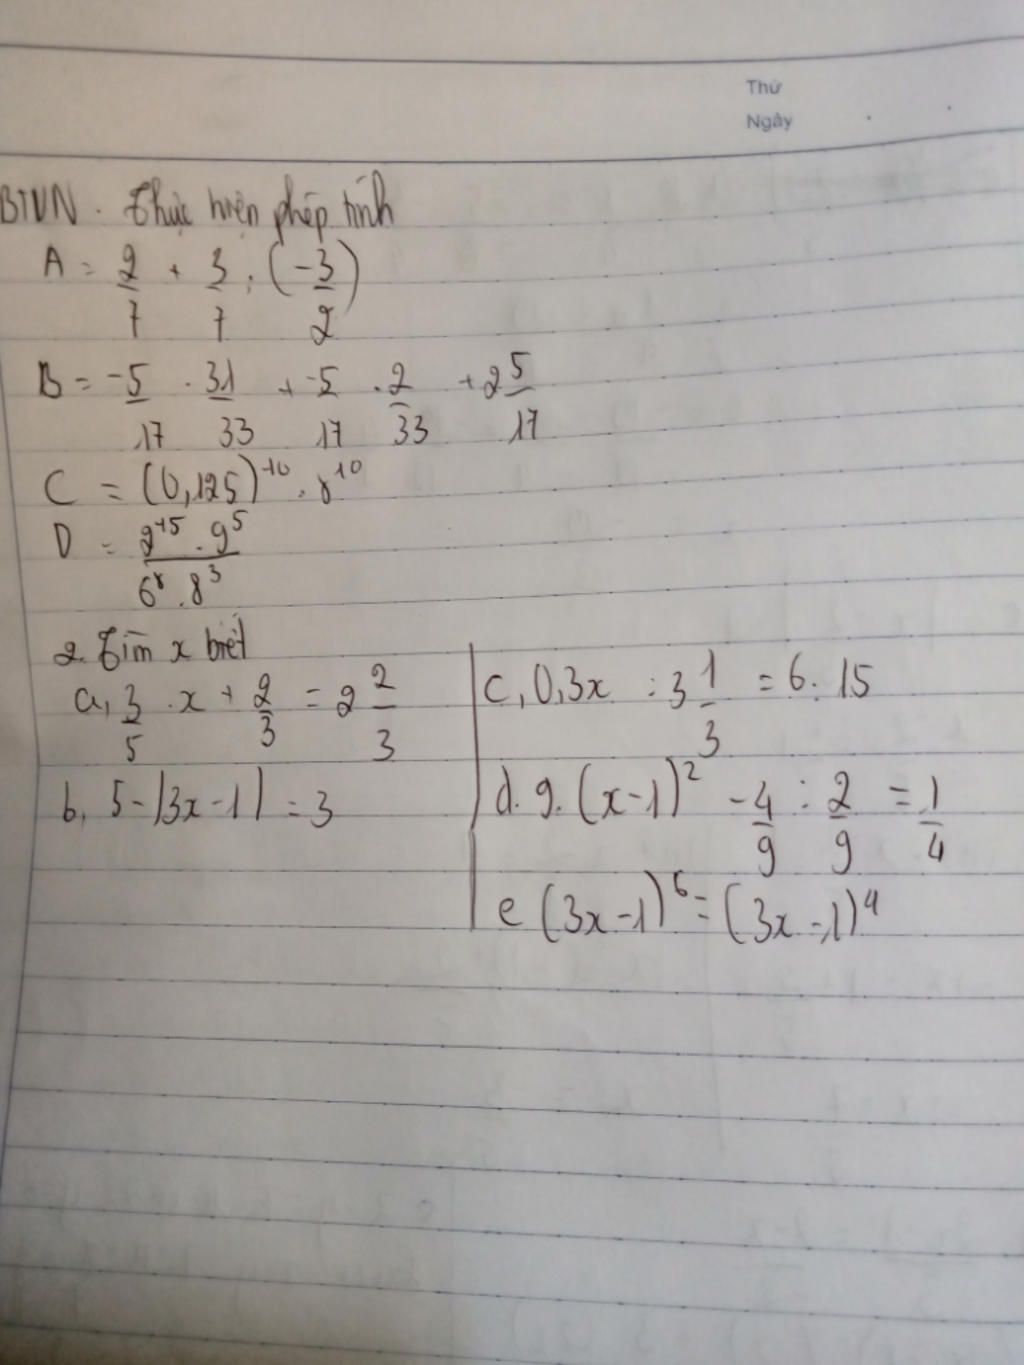 Thứ
Ngày
BTVN. Thực hiện phép tính
A = 2/7 + 3/7 : (-3/2)
B = -5/17 . 31/33 + -5/17 . 2/33 + 2 5/17
C = (0,125)^10 . 8^10
D = (2^15 . 9^5)/(6^8 . 8^3)
2. Tìm x biết
a, 3/5 . x + 2/3 = 2 2/3
b, 5 - |3x - 1| = 3
c, 0,3x : 3 1/3 = 6 . 15
d. 9. (x-1)^2 - 4/9 : 2/9 = 1/4
e (3x-1)^6 = (3x-1)^4